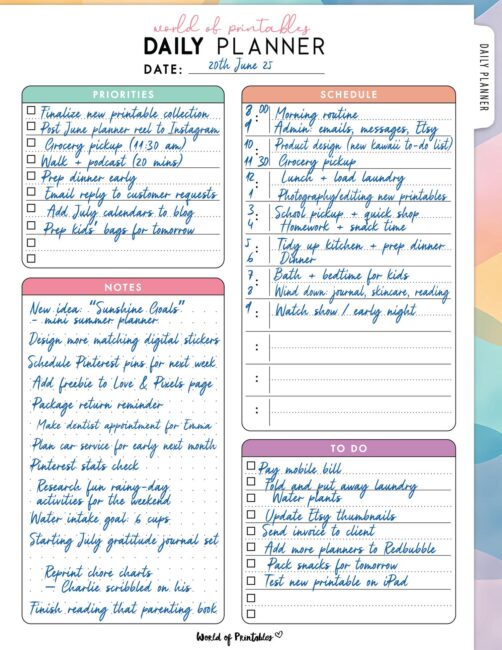 world of printables
DAILY PLANNER
DATE: 20th June 25
DAILY PLANNER
PRIORITIES
Finalize new printable collection
Post June planner reel to Instagram
Grocery pickup (11:30 am)
Walk + podcast (20 mins)
Prep dinner early
Email reply to customer requests
Add July calendars to blog
Prep kids' bags for tomorrow
NOTES
New idea: "Sunshine Goals"
- mini summer planner
Design more matching digital stickers
Schedule Pinterest pins for next week
Add freebie to Love & Pixels page
Package return reminder
Make dentist appointment for Emma
Plan car service for early next month
Pinterest stats check
Research fun rainy-day
activities for the weekend
Water intake goal: 6 cups
Starting July gratitude journal set
Reprint chore charts
– Charlie scribbled on his
Finish reading that parenting book
SCHEDULE
8:00 Morning routine
9: Admin: emails, messages, Etsy
10: Product design (new kawaii to-do list)
11:30 Grocery pickup
12: Lunch + load laundry
1 Photography/editing new printables
3: School pickup + quick shop
4 Homework + snack time
5: Tidy up kitchen + prep dinner
6 Dinner
7: Bath + bedtime for kids
8 Wind down: journal, skincare, reading
9: Watch show / early night
:
:
:
TO DO
Pay mobile bill
Fold and put away laundry
Water plants
Update Etsy thumbnails
Send invoice to client
Add more planners to Redbubble
Pack snacks for tomorrow
Test new printable on iPad
World of Printables